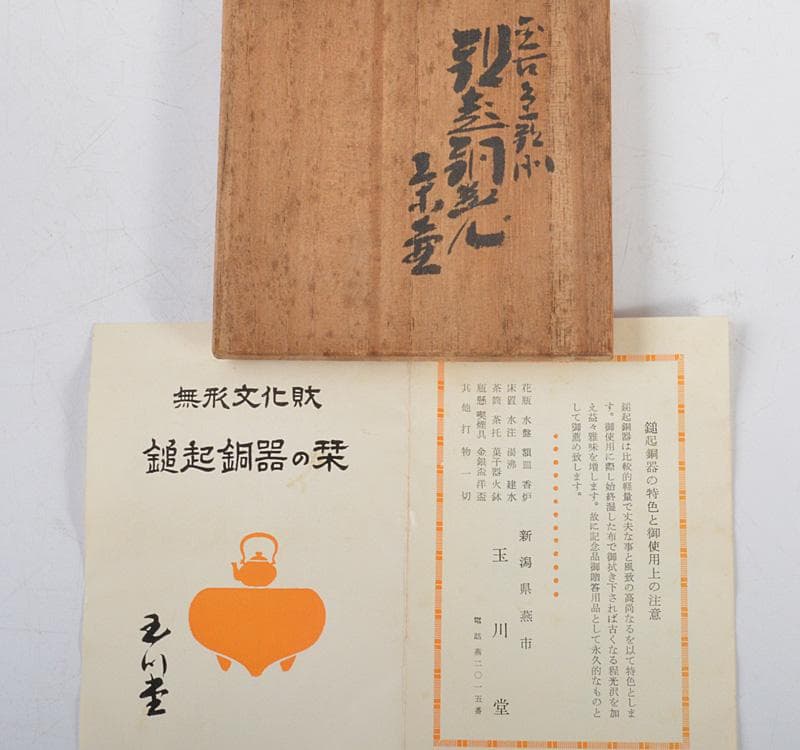 鎚起銅器の特色と御使用上の注意
鎚起銅器は比較的軽量で丈夫な事と風致の高尚なるを以て特色としま
す。御使用に際し始終湿した布で御拭き下されば古くなる程光沢を加
え益々雅味を増します。故に記念品御贈答用品として永久的なものと
して御薦め致します。
花瓶 水盤 額皿 香炉
床置 水注 湯沸 建水
茶筒 茶托 菓子器 火鉢
瓶懸 喫煙具 金銀盃 洋盃
其他打物一切
新潟県燕市
玉川堂
電話燕二〇一五番
無形文化財
鎚起銅器の栞
玉川堂